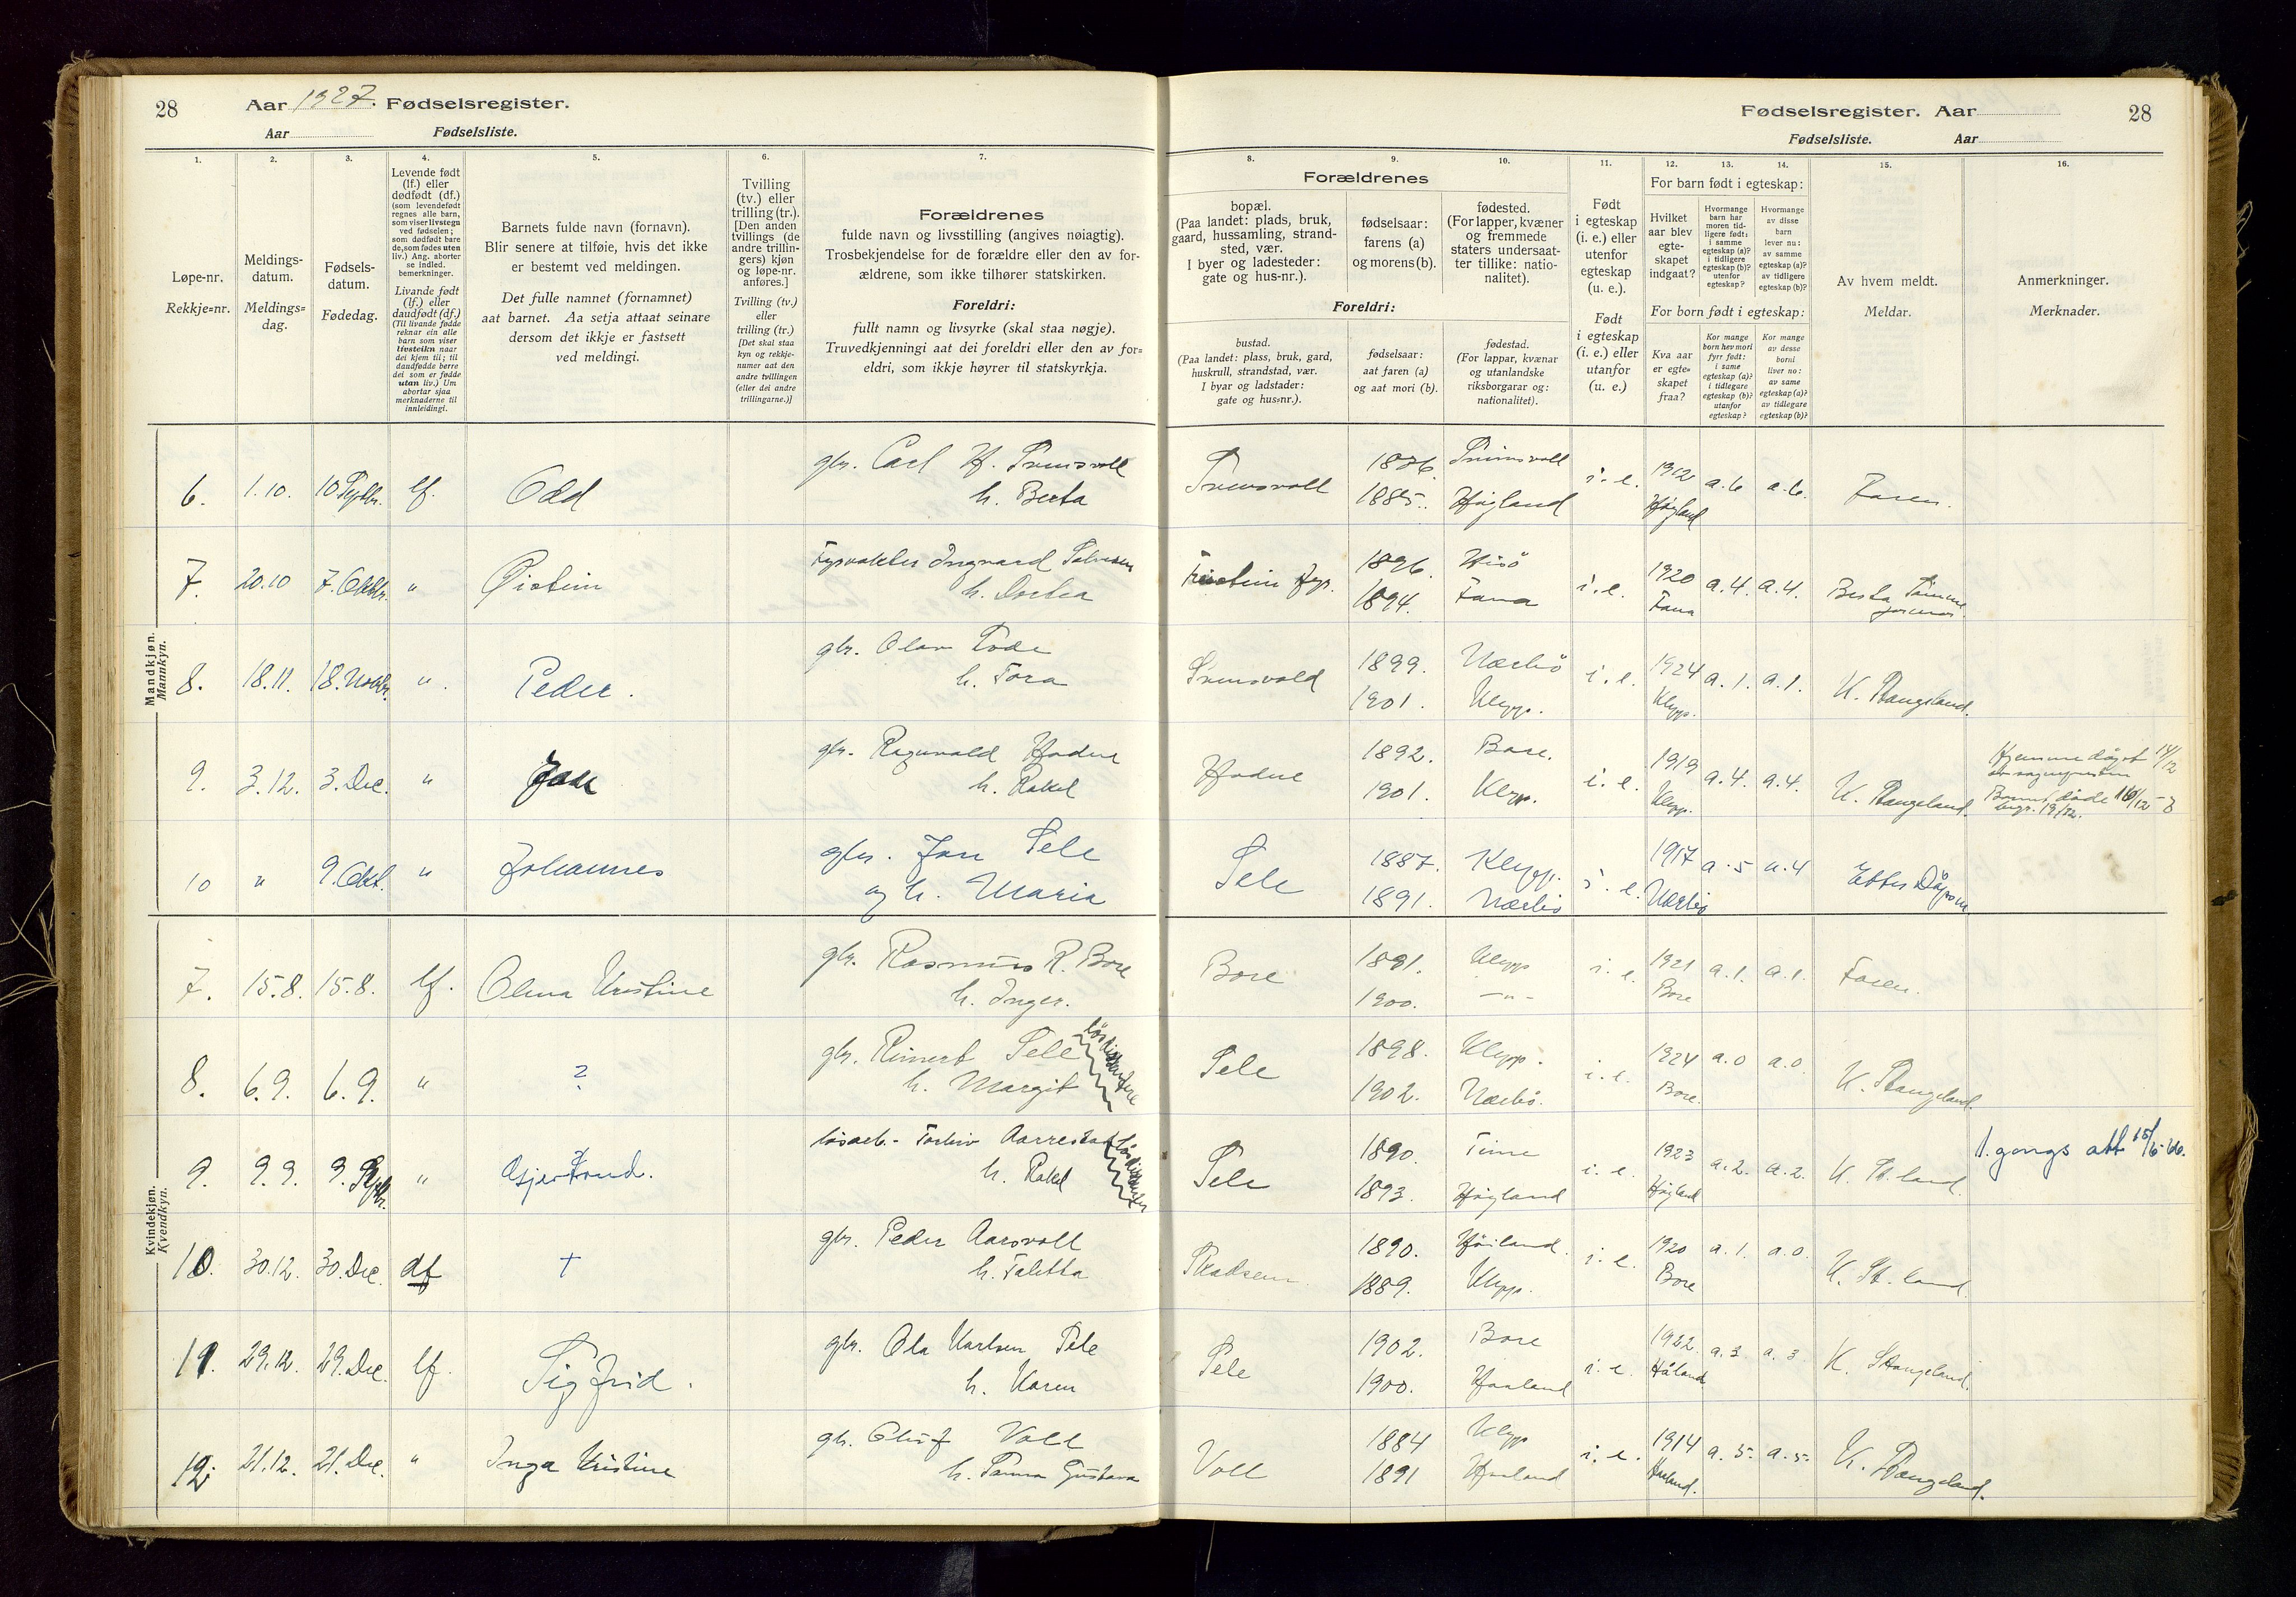 28 Aar 1927. Fødselsregister.
Aar Fødselsliste.
Fødselsregister. Aar 28
Fødselsliste. Aar
1. 2. 3. 4. 5. 6. 7. 8. 9. 10. 11. 12. 13. 14. 15. 16.
Løpe-nr.
Rekkje=nr.
Meldings-
datum.
Meldings=
dag.
Fødsels-
datum.
Fødedag.
Levende født
(lf.) eller
dødfødt (df.)
(som levendefødt
regnes alle barn,
som viser livstegn
ved fødselen;
som dødfødt bare
de, som fødes uten
liv.) Ang. aborter
se indled.
bemerkninger.
Livande født
(lf.) eller
daudfødt (df.)
(Til livande fødde
reknar ein alle
barn som viser
livsteikn naar
dei kjem til; til
daudfødde berre
dei som er fødde
utan liv.) Um
abortar sjaa
merknaderne til
innleidingi.
Barnets fulde navn (fornavn).
Blir senere at tilføie, hvis det ikke
er bestemt ved meldingen.
Det fulle namnet (fornamnet)
aat barnet. Aa setja attaat seinare
dersom det ikkje er fastsett
ved meldingi.
Tvilling
(tv.) eller
trilling (tr.).
[Den anden
tvillings (de
andre trillin-
gers) kjøn
og løpe-nr.
anføres.]
Tvilling (tv.)
eller
trilling (tr.)
[Det skal staa
kyn og rekkje-
numer aat den
andre tvillingen
(eller dei andre
trillingarne.)]
Forældrenes
fulde navn og livsstilling (angives nøiagtig).
Trosbekjendelse for de forældre eller den av for-
ældrene, som ikke tilhører statskirken.
Foreldri:
fullt namn og livsyrke (skal staa nøgje).
Truvedkjenningi aat dei foreldri eller den av for=
eldri, som ikkje høyrer til statskyrkja.
Forældrenes
bopæl.
(Paa landet: plads, bruk,
gaard, hussamling, strand-
sted, vær.
I byer og ladesteder:
gate og hus-nr.).
fødselsaar:
farens (a)
og morens (b).
fødested.
(For lapper, kvæner
og fremmede
staters undersaat-
ter tillike: natio-
nalitet).
Foreldri:
bustad.
(Paa landet: plass, bruk, gard,
huskrull, strandstad, vær.
I byar og ladstader:
gate og hus=nr.).
fødselsaar:
aat faren (a)
og aat mori (b).
fødestad.
(For lappar, kvænar
og utanlandske
riksborgarar og:
nationalitet).
Født
i egteskap
(i. e.) eller
utenfor
egteskap
(u. e.).
Født
i egteskap
(i. e.) eller
utanfor
(u. e.)
For barn født i egteskap:
Hvilket
aar blev
egte-
skapet
indgaat?
Hvormange
barn har
moren tid-
ligere født:
i samme
egteskap (a)?
i tidligere
egteskap (b)?
utenfor
egteskap?
Hvormange
av disse
barn
lever nu:
av samme
egteskap (a)?
av tidligere
egteskap (b)?
For born født i egteskap:
Kva aar
er egte=
skapet
fraa?
Kor mange
born hev mori
fyrr født:
i same
egteskap (a)?
i tidlegare
egteskap (b)?
utanfor
egteskap?
Kor mange
av desse
borni
liver no:
av same
egteskap (a)?
av tidlegare
egteskap (b)?
Av hvem meldt.
Meldar.
Anmerkninger.
Merknader.
Mandkjøn.
Mannkyn.
6. 1.10. 10 Septbr. lf. Odd gbr. Carl H. 1876. 1912 a.6 a.6. Faren.
h. Berta 1885. Høgland i. e. Høgland
7. 20.10 7. Oktbr. " Øistein Fyrvokter Ingvard Salvesen Feistein fyr. 1896. Hisö 1920 a.4. a.4. Berta
h. Dortea 1894. Fana i. e. Fana
8. 18.11. 18. Novbr. " Peder. gbr. Olav 1899. Nærbö 1924 a.1. a.1. K. Stangeland.
h. Tora 1901. Klepp. i. e. Klepp.
9. 3.12. 3. Dec. " gbr. Ragnvald Hodne Hodne 1892. Bore. 1919 a.4. a.4. K. Stangeland. Hjemmedöpt 14/12
h. Rakel 1901. Klepp. i. e. Klepp.
10 " 9. Okt. " Johannes gbr. Jon Sele Sele 1887. Klepp. 1917 a.5 a.4
og h. Maria 1891. Nærbö i. e. Nærbö
Kvindekjøn.
Kvendkyn.
7. 15.8. 15.8. lf. Olena Kristine gbr. Rasmus R. Bore Bore 1891. Klepp 1921 a.1. a.1. Faren.
h. Inger. 1900. —"— i. e. Bore
8. 6.9. 6.9. " ? gbr. Reinert Sele Sele 1898. Klepp. 1924 a.0 a.0. K. Stangeland.
h. Margit 1902. Nærbö. i. e. Bore.
9. 9.9. 9. Septbr. " Gjertrud. lösarb. Aarrestad Sele 1890. Time 1923 a.2. a.2. K. St.land. 1. gongs att 15/6-66.
h. Rakel 1893. Høgland i. e. Høgland
10. 30.12. 30. Dec. df † gbr. Peder Aarsvoll 1890. Höiland. 1920 a.1. a.0. K. St.land.
h. Taletta 1889. Klepp. i. e. Bore
11. 29.12. 29. Dec. lf. Sigfrid. gbr. Ola Karlsen Sele Sele 1902. Bore 1922. a.3. a.3 K. Stangeland.
h. Karen 1900. Haaland i. e. Håland
12. 21.12. 21. Dec. " Inga Kristine gbr. Voll Voll 1884 Klepp 1914 a.5. a.5. K. Stangeland.
h. Gustava 1891 Haaland i. e. Haaland.